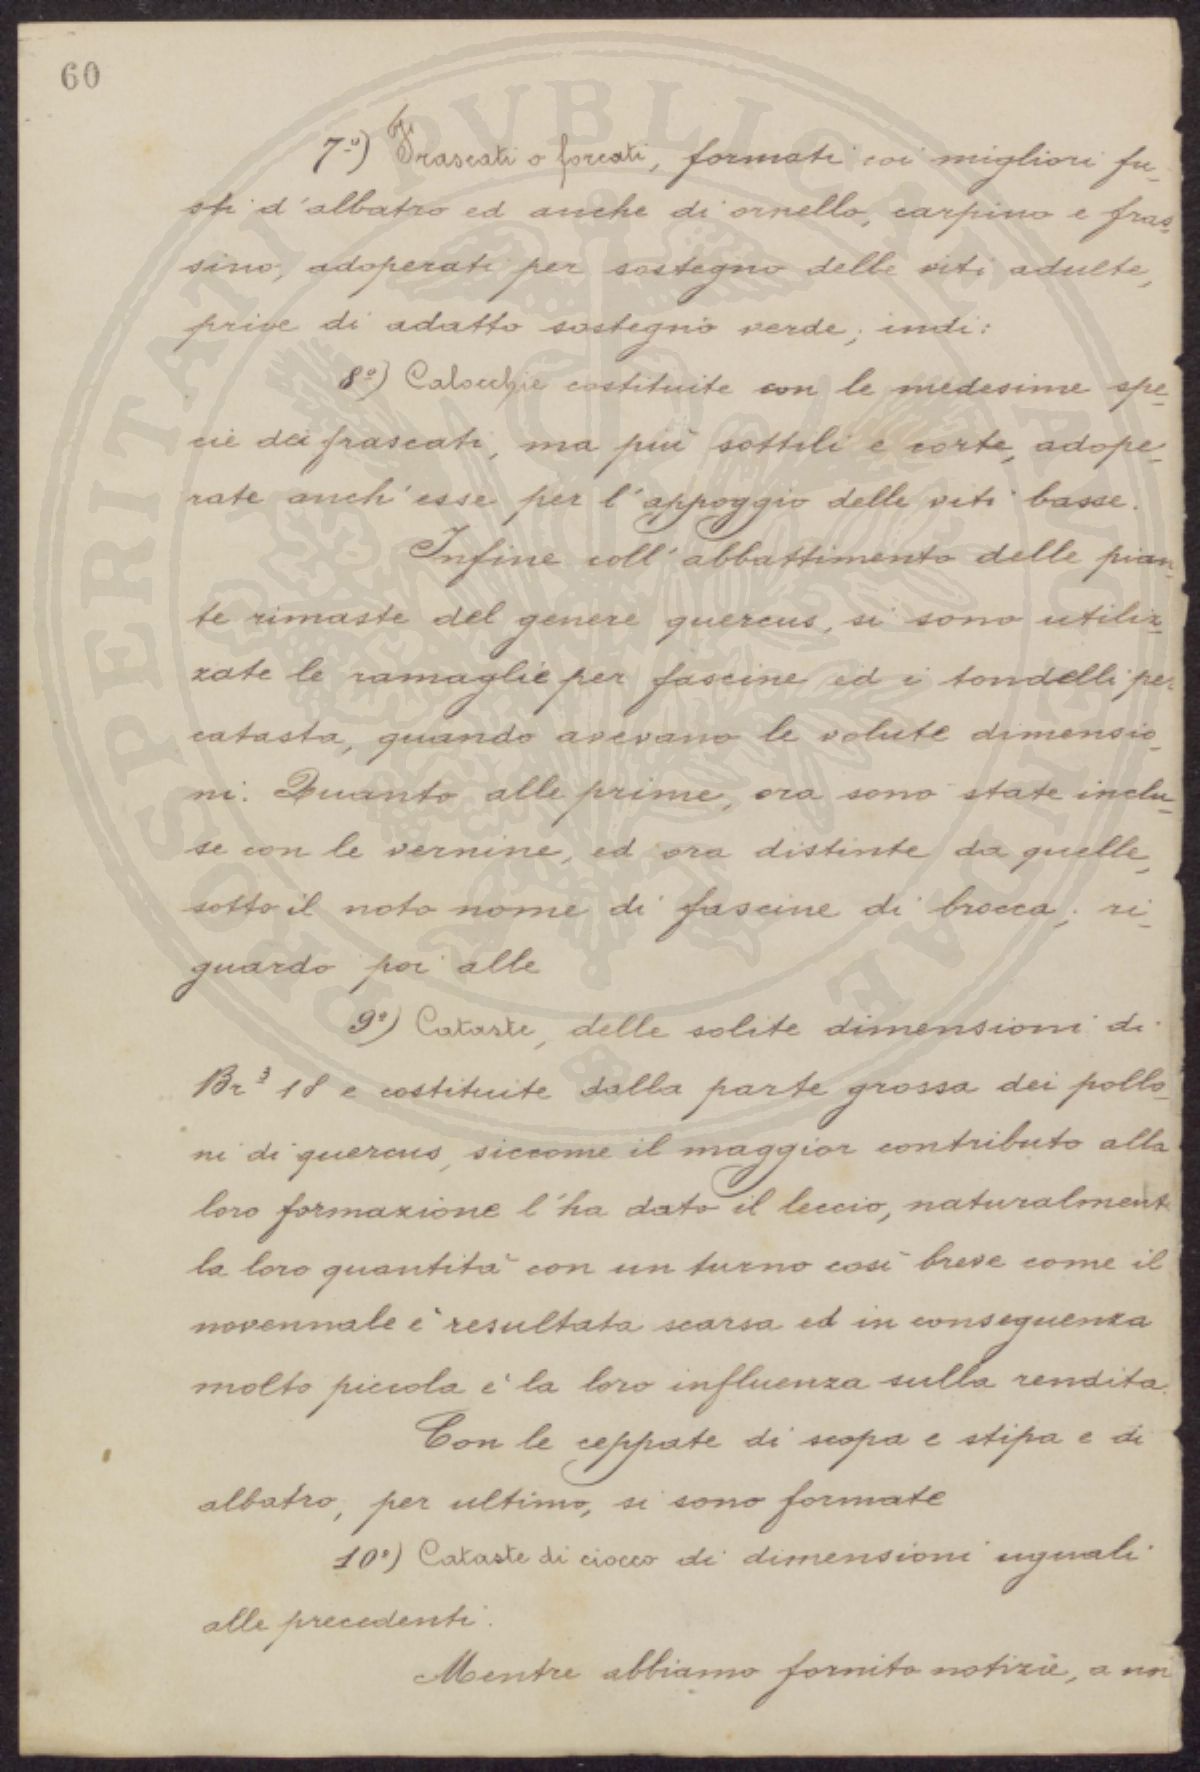 60
7º) Frascati o forcati, formati coi migliori fu-
sti d'albatro ed anche di ornello, carpino e fras-
sino, adoperati per sostegno delle viti adulte,
prive di adatto sostegno verde; indi:
8º) Calocchie costituite con le medesime spe-
cie dei frascati, ma più sottili e corte, adope-
rate anch'esse per l'appoggio delle viti basse.
Infine coll'abbattimento delle pian-
te rimaste del genere quercus, si sono utiliz-
zate le ramaglie per fascine ed i tondelli per
catasta, quando avevano le volute dimensio-
ni. Quanto alle prime, ora sono state inclu-
se con le vernine, ed ora distinte da quelle,
sotto il noto nome di fascine di brocca; ri-
guardo poi alle
9º) Cataste, delle solite dimensioni di
Br³ 18 e costituite dalla parte grossa dei pollo-
ni di quercus, siccome il maggior contributo alla
loro formazione l'ha dato il leccio, naturalment
la loro quantità con un turno così breve come il
novennale è resultata scarsa ed in conseguenza
molto piccola è la loro influenza sulla rendita.
Con le ceppate di scopa e stipa e di
albatro, per ultimo, si sono formate
10º) Cataste di ciocco di dimensioni uguali
alle precedenti.
Mentre abbiamo fornito notizie, a noi
PROSPERITATI PVBLICAE AVGENDAE